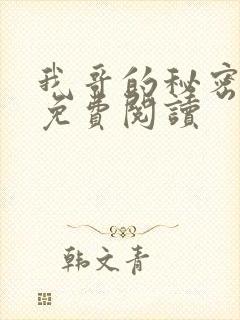 我哥的秘密
免費閱讀
韩文青